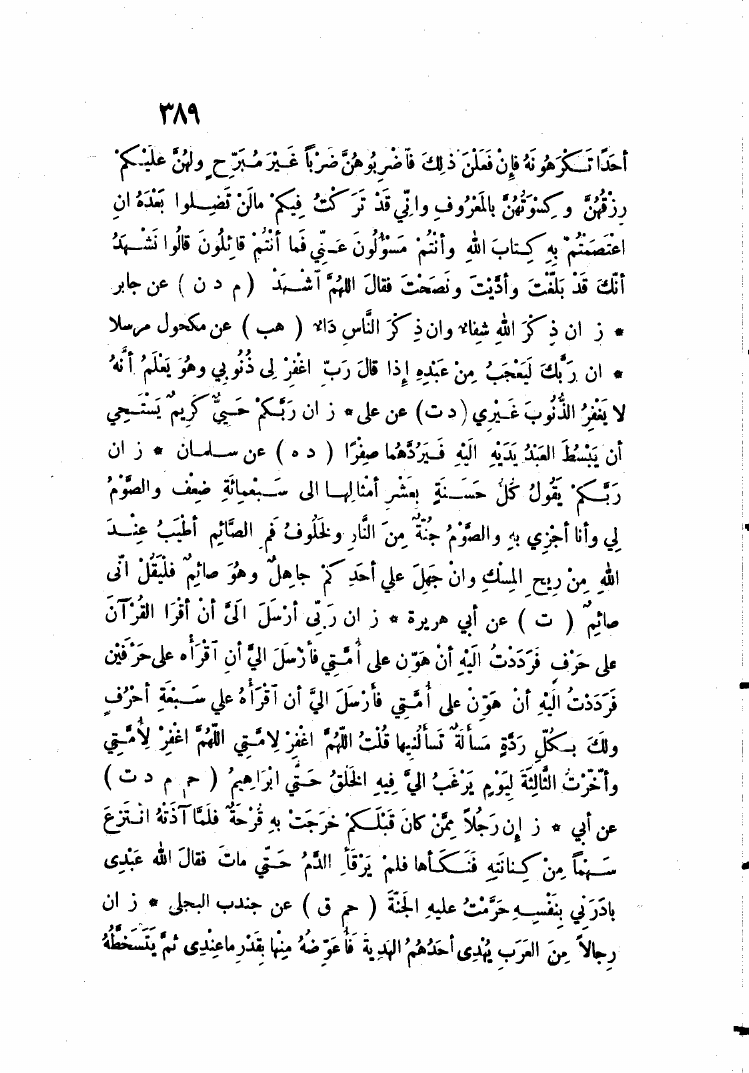 ٣٨٩
أحَدًا تَكْرَهُونَهُ فإِنْ فَعَلْنَ ذٰلِكَ فَاضْرِبُوهُنَّ ضَرْبًا غَيْرَ مُبَرِّحٍ ولَهُنَّ عَلَيْكُمْ
رِزْقُهُنَّ وكِسْوَتُهُنَّ بالمَعْرُوفِ وانِّي قَدْ تَرَكْتُ فِيكُمْ مالَنْ تَضِلوا بَعْدَهُ انِ
اعْتَصَمْتُمْ بِهِ كِتابَ اللهِ وأنْتُمْ مَسْؤُلُونَ عَنِّي فَما أنْتُمْ قائِلُونَ قالُوا نَشْهَدُ
أنَّكَ قَدْ بَلَّغْتَ وأدَّيْتَ ونَصَحْتَ فقالَ اللهُمَّ اشْهَدْ ( م د ن ) عن جابر
* ز ان ذِكْرَ اللهِ شِفاءٌ وان ذِكْرَ النَّاسِ دَاءٌ ( هب ) عن مكحول مرسلا
* ان رَبَّكَ لَيَعْجَبُ مِنْ عَبْدِهِ إِذا قالَ رَبِّ اغْفِرْ لِى ذُنُوبِي وهُوَ يَعْلَمُ أنَّهُ
لا يَغْفِرُ الذُّنُوبَ غَيْرِي (د ت) عن على * ز ان رَبَّكُمْ حَيِيٌّ كَرِيمٌ يَسْتَحِي
أن يَبْسُطَ العَبْدُ يَدَيْهِ الَيْهِ فَيَرُدَّهُما صِفْرًا ( د ه ) عن سلمان * ز ان
رَبَّكُمْ يَقُولُ كُلُّ حَسَنَةٍ بِعَشْرِ أمْثالِها الى سَبْعِمائَةِ ضِعْفٍ والصَّوْمُ
لِي وأنا أجْزِي بهِ والصَّوْمُ جُنَّةٌ مِنَ النَّارِ ولَخُلُوفُ فَمِ الصَّائِمِ أطْيَبُ عِنْدَ
اللهِ مِنْ رِيحِ المِسْكِ وانْ جَهِلَ علي أحَدِكُمْ جاهِلٌ وهُوَ صائِمٌ فَلْيَقُلْ انّى
صائِمٌ ( ت ) عن أبي هريرة * ز ان رَبِّى أرْسَلَ الَيَّ أنْ أقْرَا القُرْآنَ
على حَرْفٍ فَرَدَدْتُ الَيْهِ أنْ هَوِّن على أُمَّتِي فأرْسَلَ اليَّ أنِ اقْرَأه على حَرْفَيْنِ
فَرَدَدْتُ الَيْهِ أنْ هَوِّنْ على أُمَّتِي فأرْسَلَ اليَّ أن اقْرَأهُ علي سَبْعَةِ أحْرُفٍ
ولكَ بِكلِّ رَدَّةٍ مَسأَلَةٌ تَسأَلُنِيها قُلْتُ اللّهُمَّ اغْفِرْ لِامَّتِي اللّهُمَّ اغْفِرْ لِأُمَّتِي
وأخَّرْتُ الثَّالِثَةَ لِيَوْمٍ يَرْغَبُ اليَّ فِيهِ الخَلْقُ حَتَّى ابْرَاهِيمُ ( حم م د ت )
عن أبي * ز إِن رَجُلًا مِمَّنْ كانَ قَبْلَكُمْ خَرَجَتْ بِهِ قُرْحَةٌ فَلَمَّا آذَتْهُ انْتَزَعَ
سَهْمًا مِنْ كِنانَتِهِ فَنَكَأها فلَمْ يَرْقَأِ الدَّمُ حَتّي ماتَ فقالَ الله عَبْدِى
بادَرَنِي بِنَفْسِهِ حَرَّمْتُ عليهِ الجَنّةَ ( حم ق ) عن جندب البجلى * ز ان
رِجالاً مِنَ العَرَبِ يُهْدِى أحَدُهُمُ الهَدِيةَ فَأُعَوِّضُهُ مِنْها بِقَدْرِ ماعِنْدِى ثمَّ يَتَسَخَّطُهُ